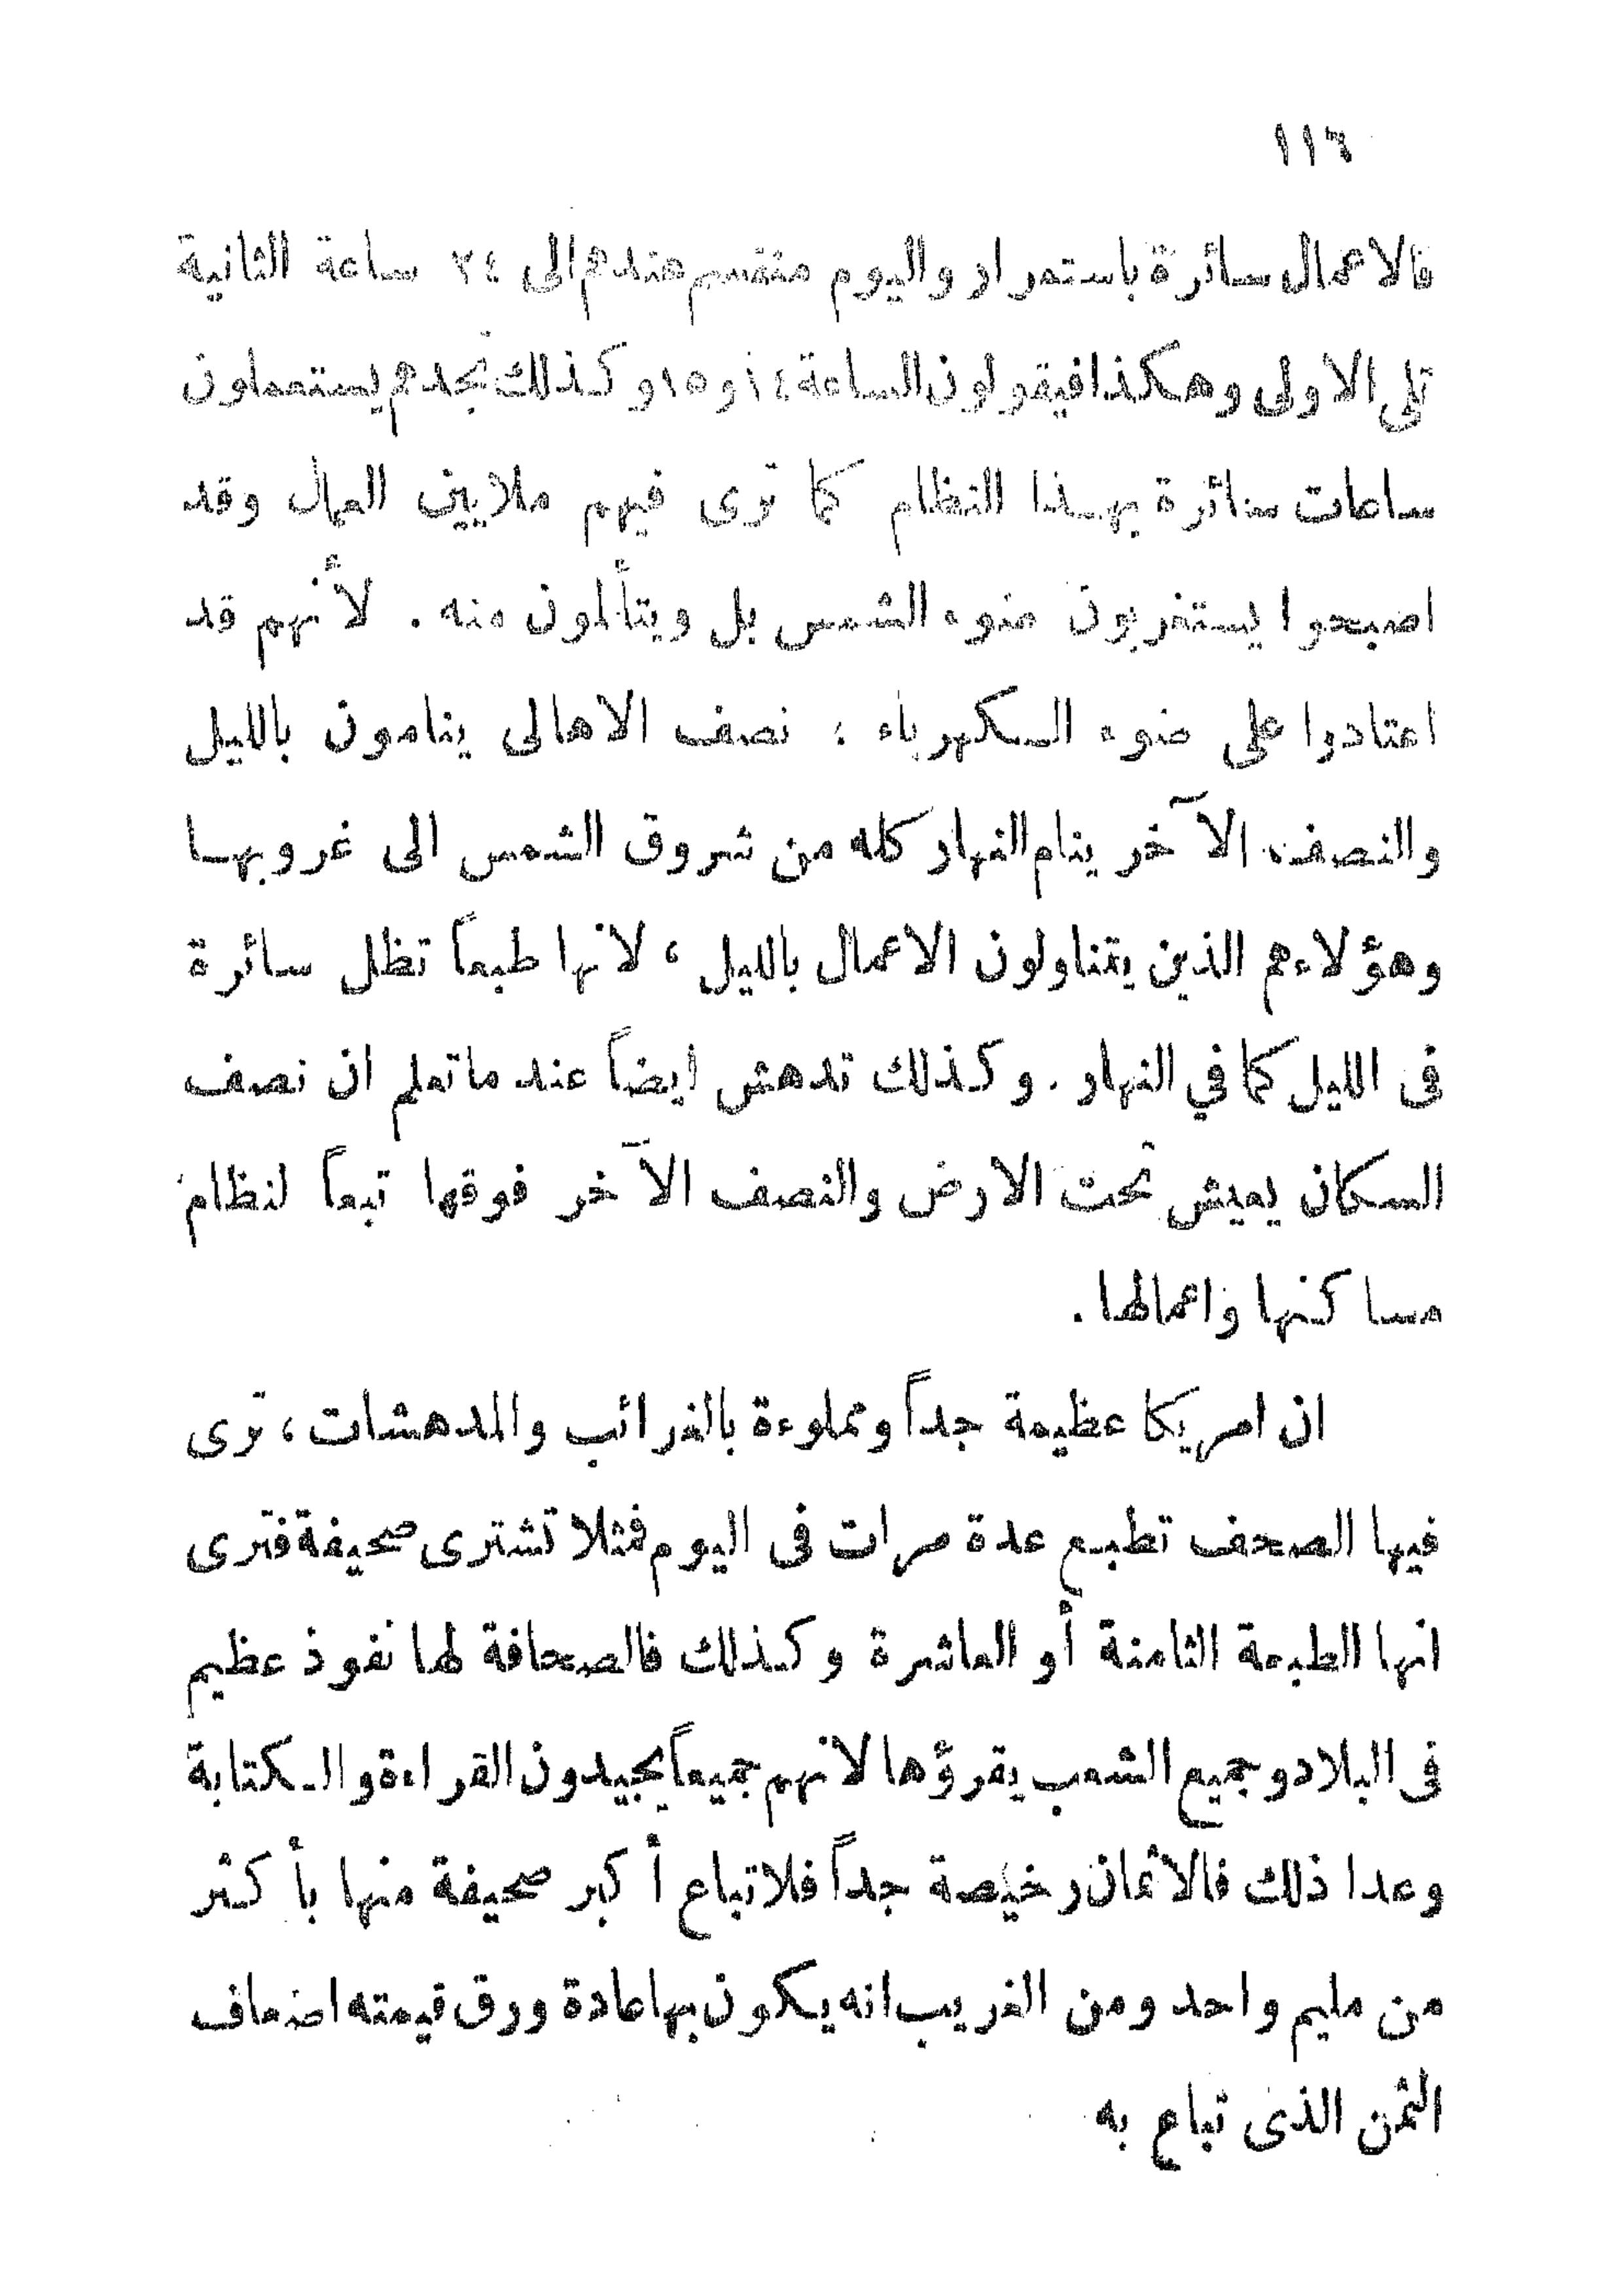 ١١٦
فالاعمال سائرة باستمرار واليوم منقسم عندهم الى ٢٤ ساعة الثانية
تلى الاولى وهكذا فيقولون الساعة ١٤ و١٥ وكذلك تجدهم يستعملون
ساعات سائرة بهذا النظام كما ترى فيهم ملايين العمال وقد
اصبحوا يستغربون ضوء الشمس بل ويتألمون منه . لأنهم قد
اعتادوا على ضوء الكهرباء ؛ نصف الاهالى ينامون بالليل
والنصف الآخر ينام النهار كله من شروق الشمس الى غروبها
وهؤلاء هم الذين يتناولون الاعمال بالليل ، لانها طبعاً تظل سائرة
فى الليل كما في النهار . وكذلك تدهش ايضاً عند ما تعلم ان نصف
السكان يعيش تحت الارض والنصف الآخر فوقها تبعاً لنظام
مساكنها واعمالها .
ان امريكا عظيمة جداً ومملوءة بالغرائب والمدهشات ، ترى
فيها الصحف تطبع عدة مرات فى اليوم فمثلا تشترى صحيفة فترى
انها الطبعة الثامنة أو العاشرة وكذلك فالصحافة لها نفوذ عظيم
فى البلاد وجميع الشعب يقرؤها لانهم جميعاً يجيدون القراءة والكتابة
وعدا ذلك فالاثمان رخيصة جداً فلا تباع أكبر صحيفة منها بأكثر
من مليم واحد ومن الغريب انه يكون بها عادة ورق قيمته اضعاف
الثمن الذى تباع به